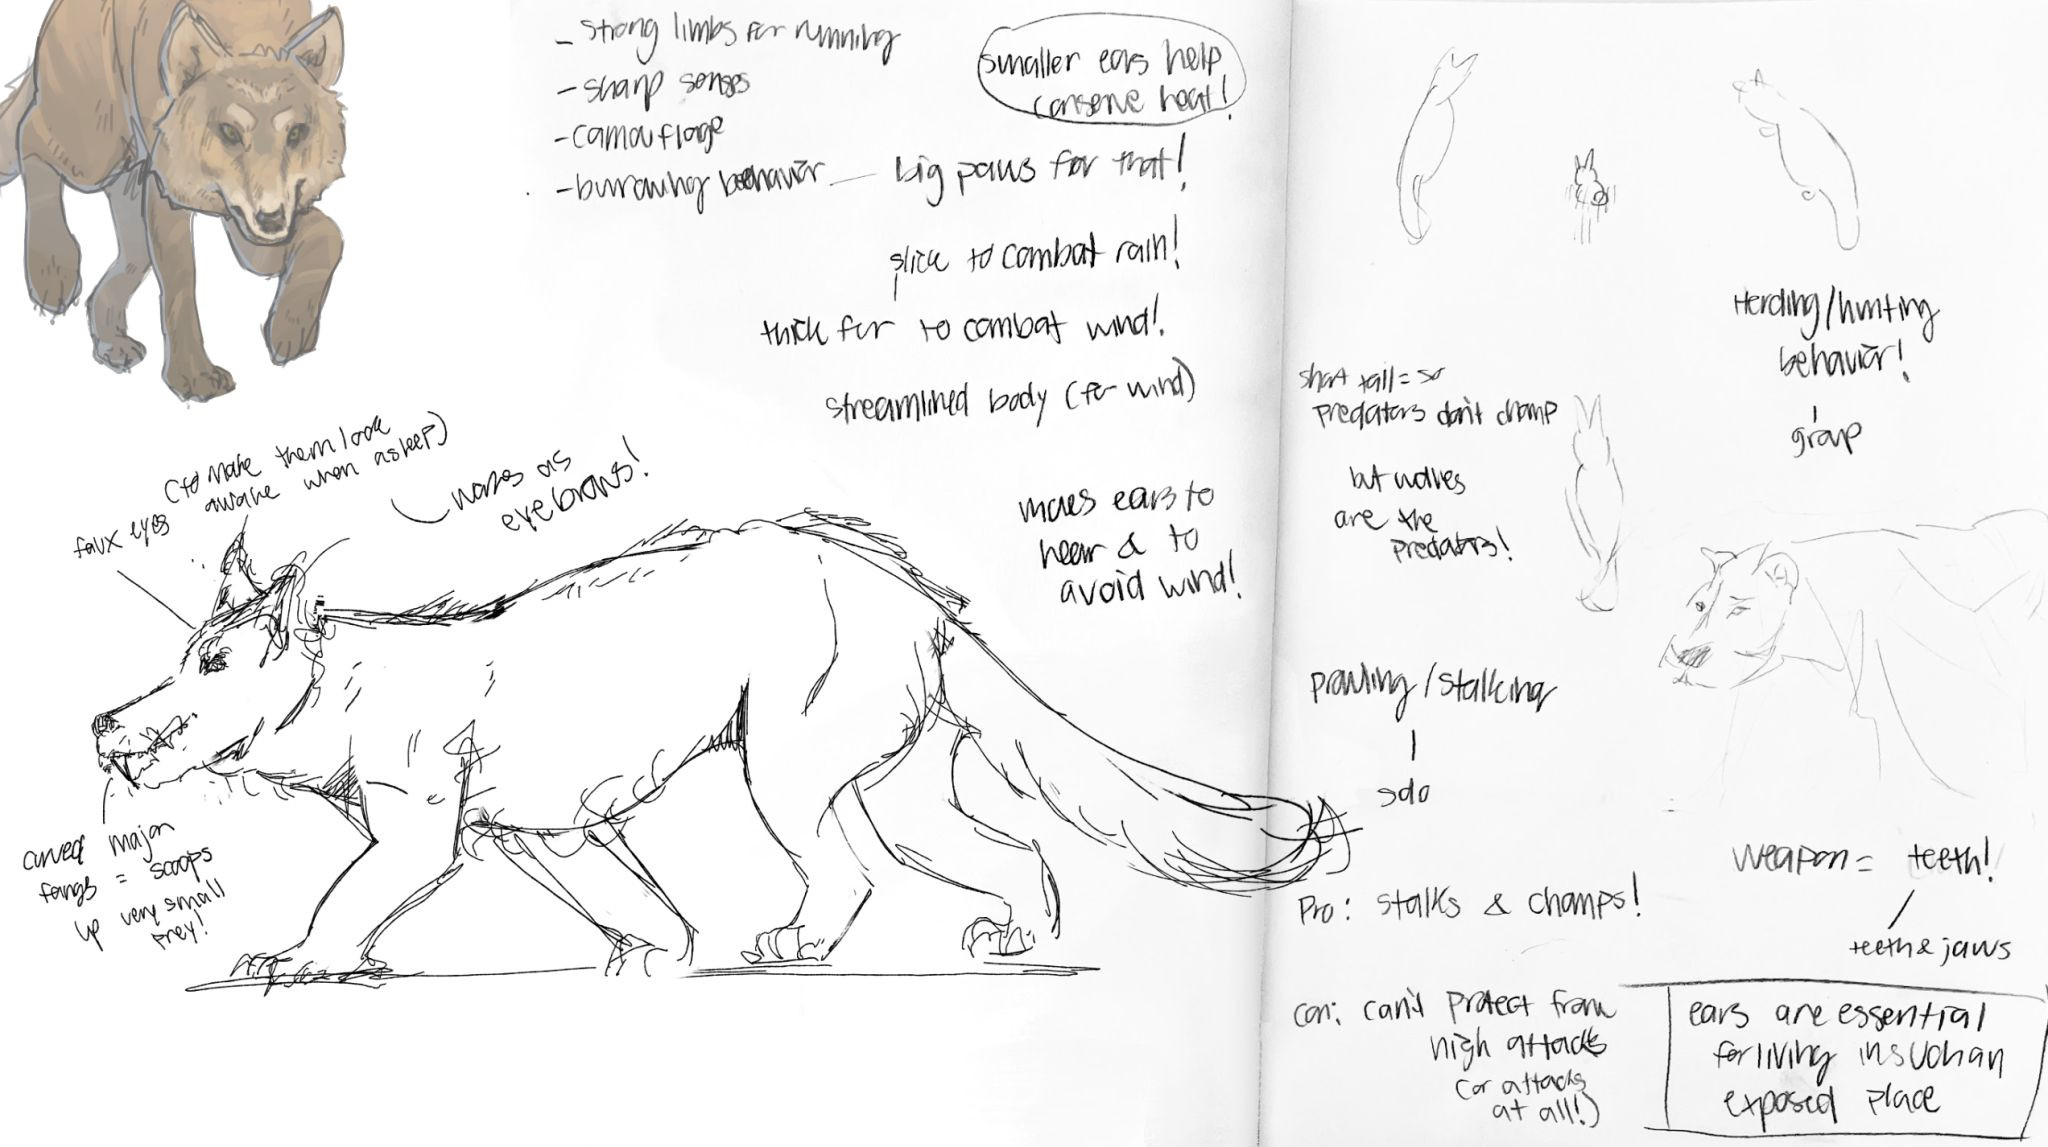 - strong limbs for running
- sharp senses
- camouflage
- burrowing behavior — big paws for that!
smaller ears help
conserve heat!
slick to combat rain!
thick fur to combat wind!
streamlined body (for wind)
moves ears to
hear & to
avoid wind!
faux eyes
(to make them look
awake when asleep)
works as
eyebrows!
curved major
fangs = scoops
up very small
prey!
Herding/hunting
behavior!
group
short tail = so
predators don't chomp
but wolves
are the
predators!
prowling/stalking
solo
weapon = teeth!
teeth & jaws
Pro: stalks & chomps!
con: can't protect from
high attacks
(or attacks
at all!)
ears are essential
for living in such an
exposed place